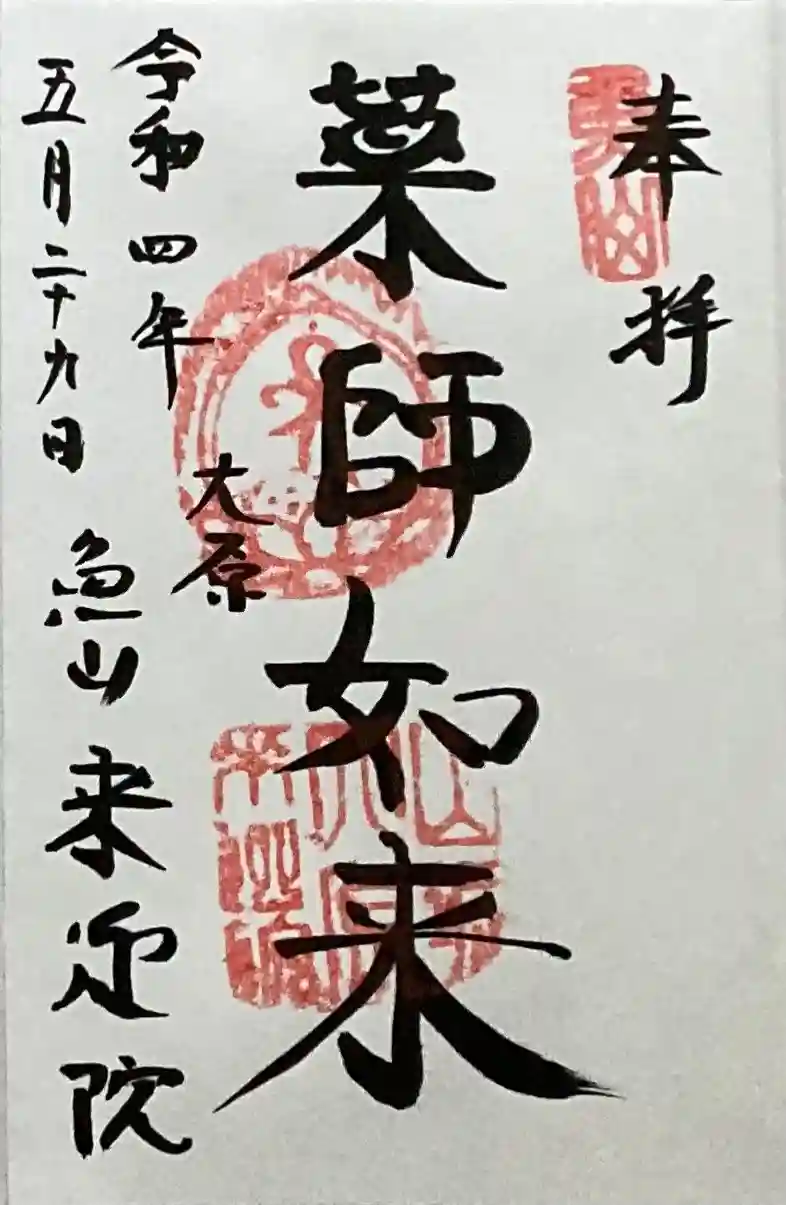 奉拝
魚山
薬師如来
大原
令和四年
五月二十九日
魚山来迎院